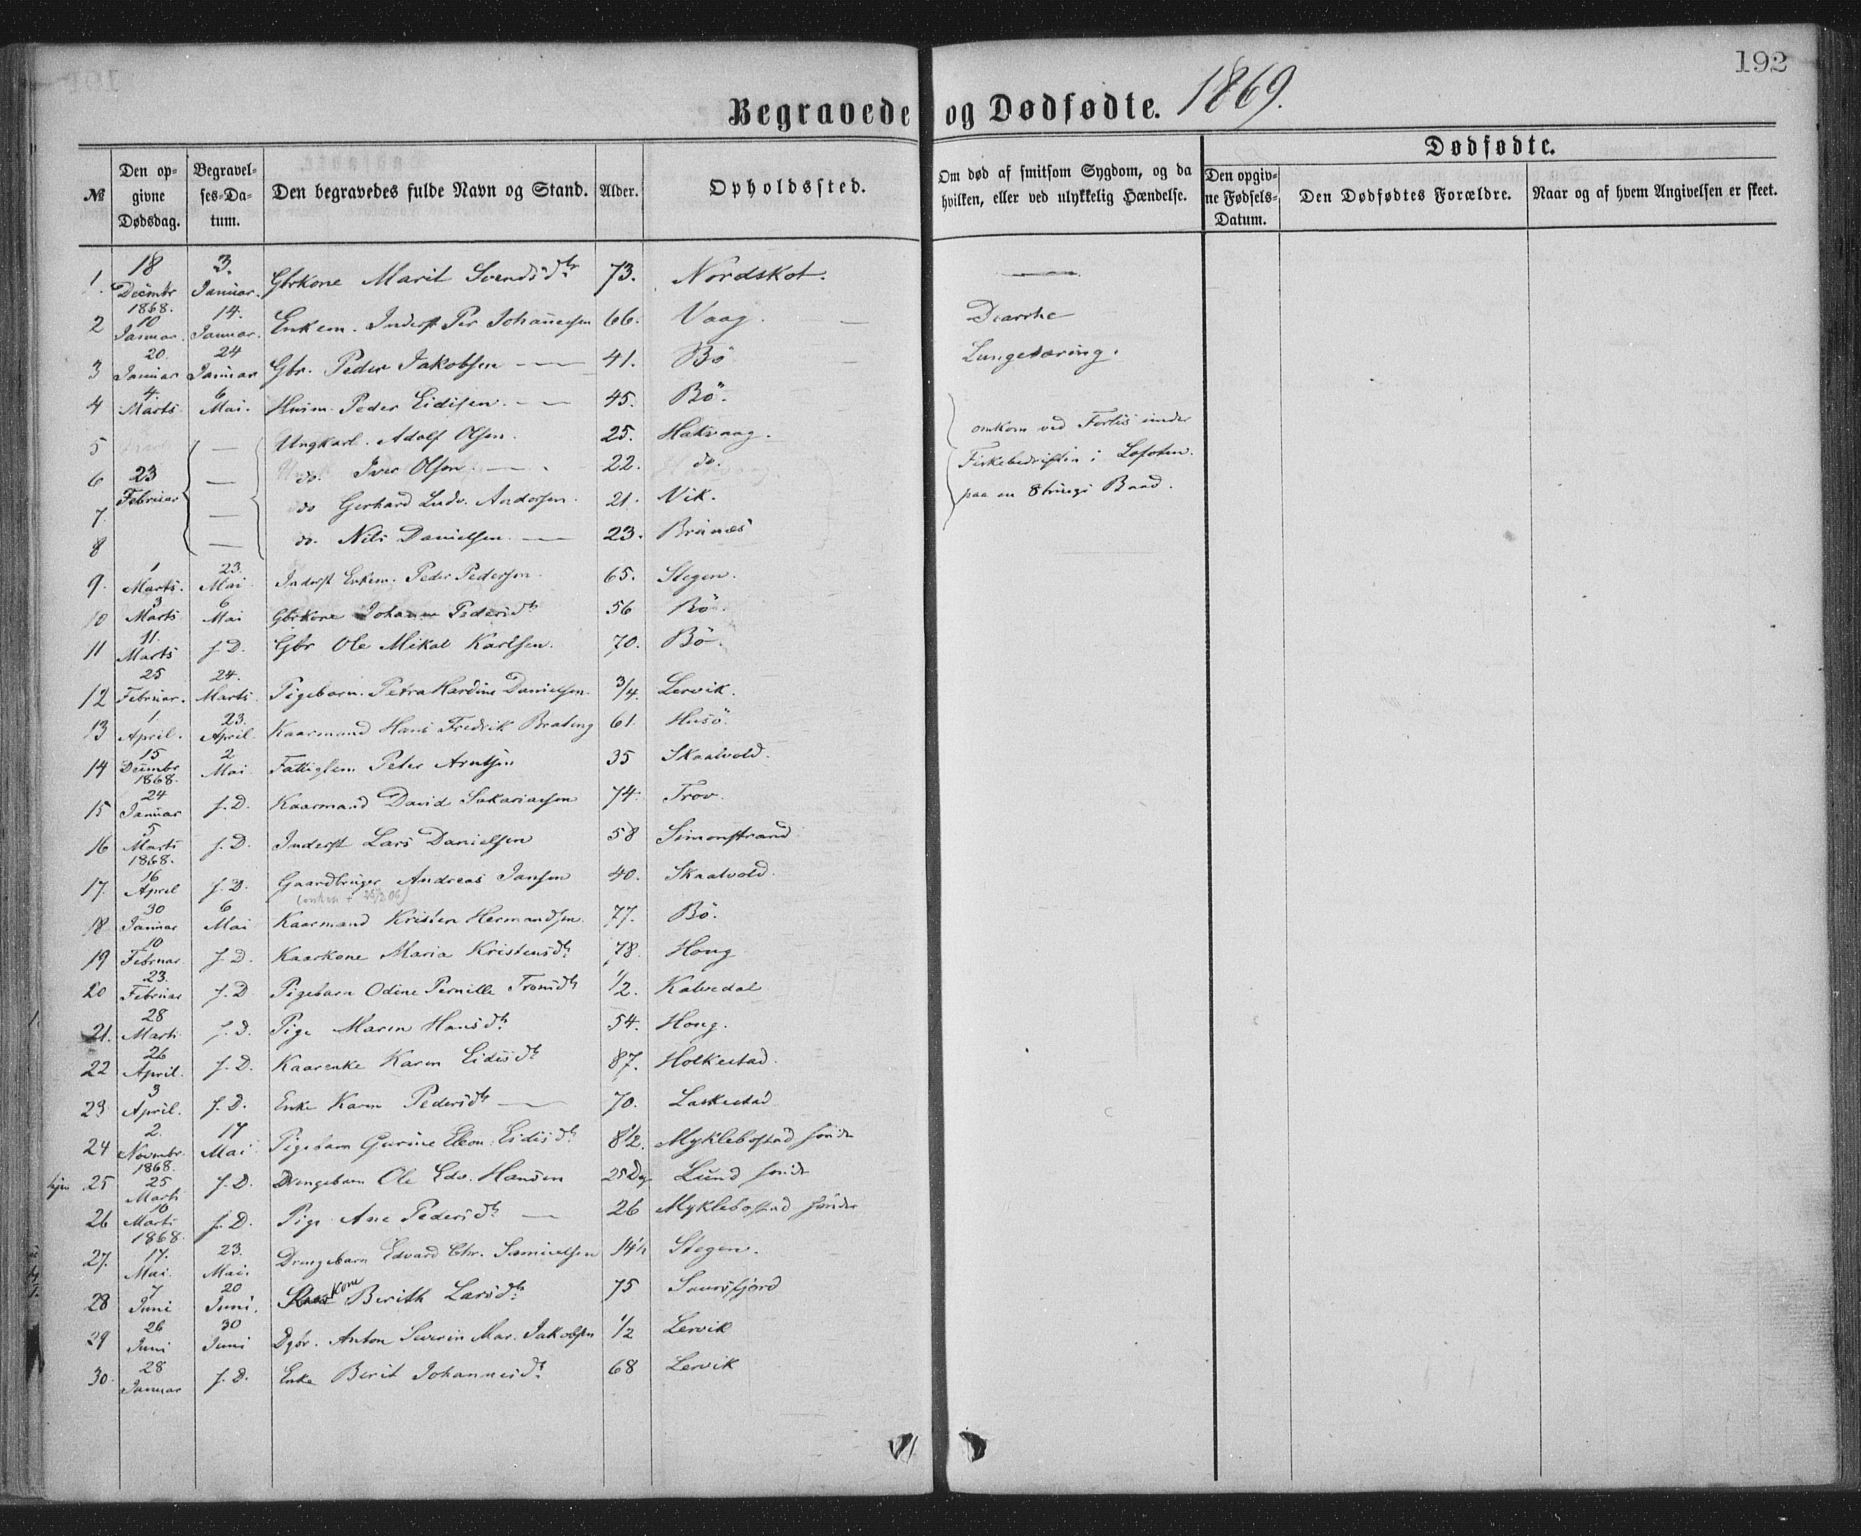 192
Begravede og Dødfødte. 1869.
Dødfødte.
№ Den opgivne Dødsdag. Begravelses-Datum. Den begravedes fulde Navn og Stand. Alder. Opholdssted. Om død af smitsom Sygdom, og da hvilken, eller ved ulykkelig Hændelse. Den opgivne Fødsels-Datum. Den Dødfødtes Forældre. Naar og af hvem Angivelsen er skeet.
1. 18 Decmbr 1868. 3. Januar. Gbrkone Marit Svendsdtr 73. Nordskot. —
2 10 Januar. 14. Januar. Enkem. Inderst Per Johannesen 66. Vaag. — Diarrhe
3 20. Januar 24 Januar Gbr. Peder Jakobsen — 41. Bö — Lungetæring.
4 4. Marts 6 Mai. Husm. Peder Eidisen. — 45. Bö.
5 — Ungkarl. Adolf Olsen. 25. Hakvaag. omkom ved Forlis under
6 23 Februar — do. Iver Olsen. — 22. do. Fiskebedriften i Lofoten.
7. — do Gerhard Ludv. Andersen. 21. Vik. paa en 8trings Baad.
8 — do. Nils Danielsen. — 23. Brünæs
9. 1 Marts. 23. Mai. Inderst Enkem. Peder Pedersen. 65. Stegen.
10 3 Marts 6 Mai Gbrkone Johanna Pedersdtr 56 Bö
11 11. Marts s. D. Gbr Ole Mikal Karlsen. 70. Bö.
12 25 Februar. 24. Marts. Pigebarn. Petra Hardine Danielsen. 3/4. Lervik.
13 1 April. 23. April. Kaarmand Hans Fredrik Brateng 61. Husö.
14 15 Decmbr 1868. 2 Mai Fattiglem Peter Arntsen 35 Skaalvold.
15 24 Januar s. D. Kaarmand David Sakariasen 74. Trov.
16 5 Marts 1868. s. D. Inderst Lars Danielsen 58 Simonstrand
17. 16 April s. D. Gaardbruger Andreas Jansen 40. Skaalvold.
18 30 Januar 6 Mai Kaarmand Kristen Hermandsen. 77. Bö.
19 10 Februar. s. D. Kaarkone Maria Kristensdtr 78. Houg
20 23. Februar s. D. Pigebarn Odine Pernille Tronsdtr 1/2. Kalvedal
21. 28 Marts s. D. Pige Maren Hansdtr. 54. Houg.
22 26 April. s. D. Kaarenke Karen Eidisdtr 87. Holkestad.
23. 3 April. s. D. Enke Karen Pedersdtr — 70. Laskestad
24 2. Novmbr. 1868. 17 Mai Pigebarn Gurine Eleon. Eidisdtr 8 1/2. Myklebostad söndr
25 25 Marts s. D. Drengebarn Ole Edv. Hansen 25 Dag Lund söndr
26 10 Marts 1868. s. D. Pige Ane Pedersdtr — 26 Myklebostad söndre
27. 17. Mai. 23. Mai. Drengebarn Edvard Chr. Samuelsen 14 1/2 Stegen.
28 7 Juni 20 Juni. Kaarkone Berith Larsdtr 75 Saursfjord
29 26 Juni 30 Juni Dgbr. Anton Severin Mar. Jakobsen 1/2 Lervik
30. 28 Januar s. D. Enke Berit Johannesdtr. 68 Lervik